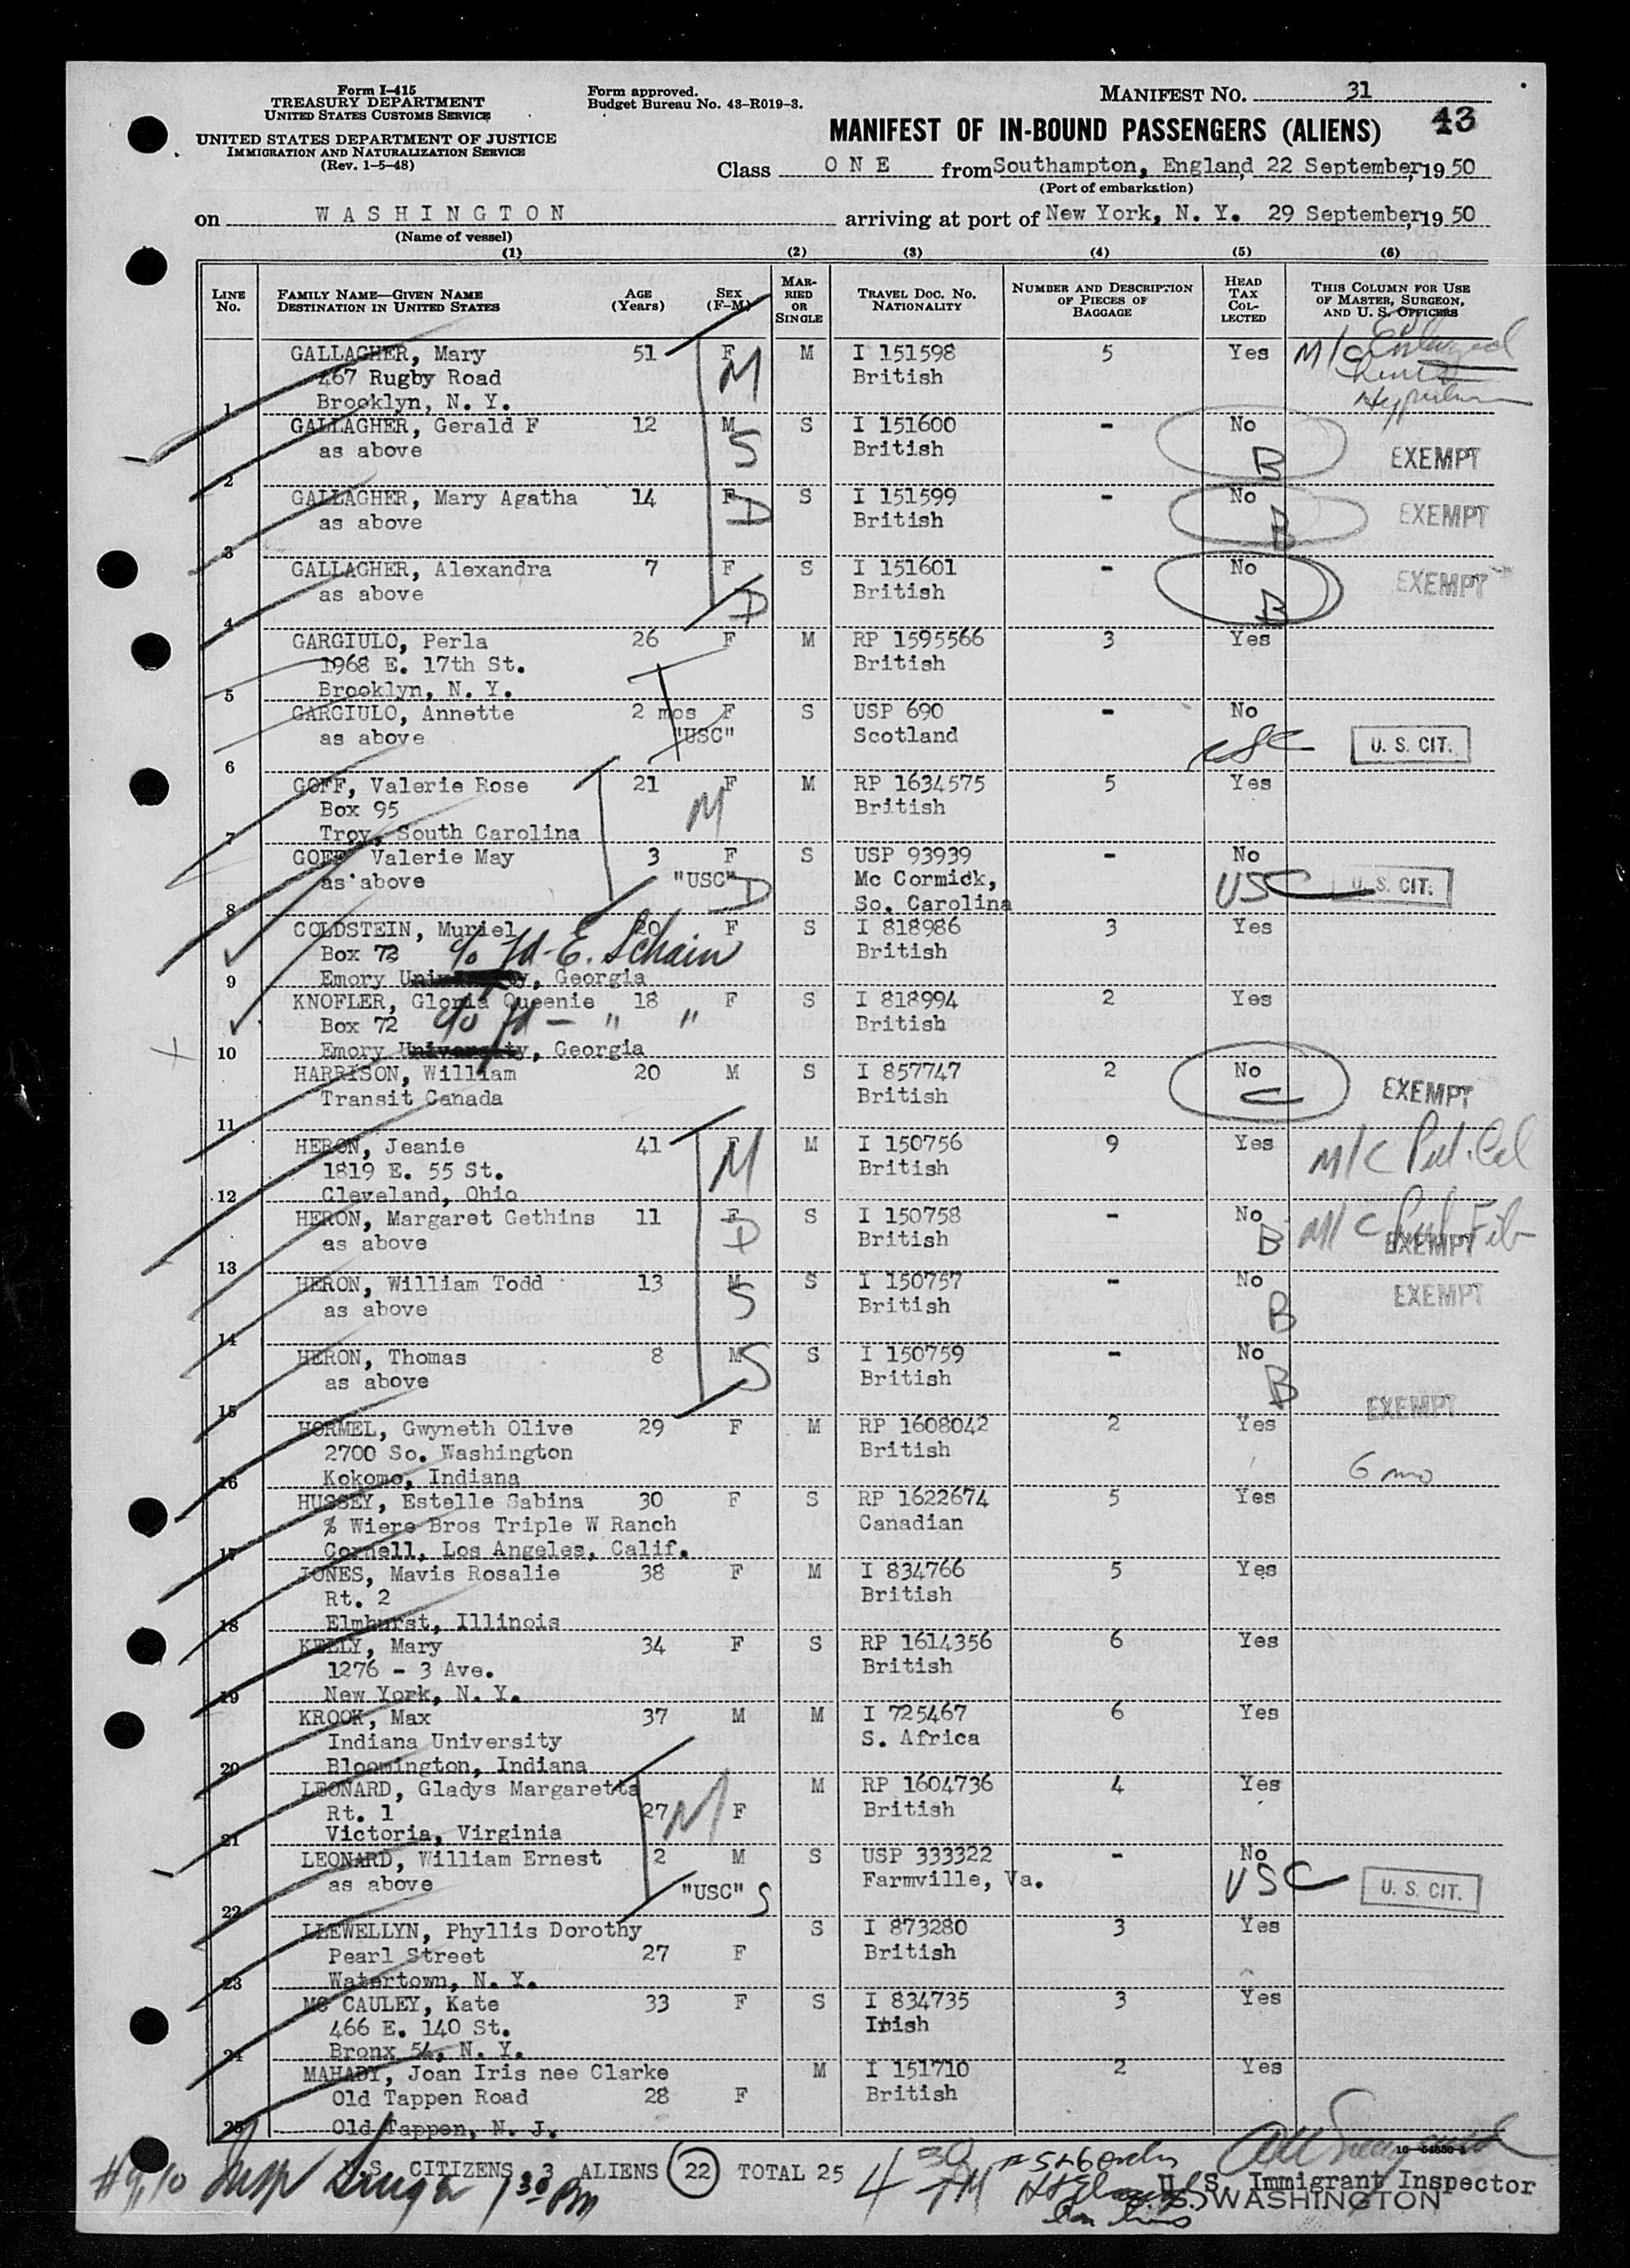 Form I-415
TREASURY DEPARTMENT
UNITED STATES CUSTOMS SERVICE
UNITED STATES DEPARTMENT OF JUSTICE
IMMIGRATION AND NATURALIZATION SERVICE
(Rev. 1-5-48)
Form approved.
Budget Bureau No. 43-R019-3.
MANIFEST NO. 31
43
MANIFEST OF IN-BOUND PASSENGERS (ALIENS)
Class O N E from Southampton, England, 22 September, 19 50
(Port of embarkation)
on W A S H I N G T O N arriving at port of New York, N. Y. 29 September, 19 50
(Name of vessel)
(1) (2) (3) (4) (5) (6)
LINE No. FAMILY NAME—GIVEN NAME DESTINATION IN UNITED STATES AGE (Years) SEX (F-M) MARRIED OR SINGLE TRAVEL DOC. NO. NATIONALITY NUMBER AND DESCRIPTION OF PIECES OF BAGGAGE HEAD TAX COLLECTED THIS COLUMN FOR USE OF MASTER, SURGEON, AND U. S. OFFICERS
GALLAGHER, Mary 51 F M I 151598 5 Yes M/C Enlarged
467 Rugby Road M British
1 Brooklyn, N. Y.
GALLAGHER, Gerald F 12 M S I 151600 - No
as above S British B EXEMPT
2
GALLAGHER, Mary Agatha 14 F S I 151599 - No
as above D British B EXEMPT
3
GALLAGHER, Alexandra 7 F S I 151601 - No
as above D British B EXEMPT
4
GARGIULO, Perla 26 F M RP 1595566 3 Yes
1968 E. 17th St. British
5 Brooklyn, N. Y.
GARGIULO, Annette 2 mos F S USP 690 - No
as above "USC" Scotland USC U. S. CIT.
6
GOFF, Valerie Rose 21 F M RP 1634575 5 Yes
Box 95 M British
7 Troy, South Carolina
GOFF, Valerie May 3 F S USP 93939 - No
as above "USC" D Mc Cormick, USC U. S. CIT.
8 So. Carolina
COLDSTEIN, Muriel 20 F S I 818986 3 Yes
Box 72 c/o Jd-E. Schain British
9 Emory University, Georgia
KNOFLER, Gloria Queenie 18 F S I 818994 2 Yes
Box 72 c/o Jd - " " British
10 Emory University, Georgia
HARRISON, William 20 M S I 857747 2 No
Transit Canada British C EXEMPT
11
HERON, Jeanie 41 F M I 150756 9 Yes M/C
1819 E. 55 St. M British
12 Cleveland, Ohio
HERON, Margaret Gethins 11 F S I 150758 - No M/C
as above D British B EXEMPT
13
HERON, William Todd 13 M S I 150757 - No EXEMPT
as above S British B
14
HERON, Thomas 8 M S I 150759 - No
as above S British B
15 EXEMPT
HORMEL, Gwyneth Olive 29 F M RP 1608042 2 Yes
2700 So. Washington British
16 Kokomo, Indiana 6 mo
HUSSEY, Estelle Sabina 30 F S RP 1622674 5 Yes
% Wiere Bros Triple W Ranch Canadian
17 Cornell, Los Angeles, Calif.
JONES, Mavis Rosalie 38 F M I 834766 5 Yes
Rt. 2 British
18 Elmhurst, Illinois
KELLY, Mary 34 F S RP 1614356 6 Yes
1276 - 3 Ave. British
19 New York, N. Y.
KROOK, Max 37 M M I 725467 6 Yes
Indiana University S. Africa
20 Bloomington, Indiana
LEONARD, Gladys Margaretta M RP 1604736 4 Yes
Rt. 1 27 M F British
21 Victoria, Virginia
LEONARD, William Ernest 2 M S USP 333322 - No
as above "USC" S Farmville, Va. USC U. S. CIT.
22
LLEWELLYN, Phyllis Dorothy S I 873280 3 Yes
Pearl Street 27 F British
23 Watertown, N. Y.
MC CAULEY, Kate 33 F S I 834735 3 Yes
466 E. 140 St. Irish
24 Bronx 54, N. Y.
MAHADY, Joan Iris nee Clarke M I 151710 2 Yes
Old Tappen Road 28 F British
25 Old Tappen, N. J.
#9,10 Insp 1 30 Pm U.S. CITIZENS 3 ALIENS 22 TOTAL 25 4 30 PM
U. S. Immigrant Inspector
S.S. WASHINGTON